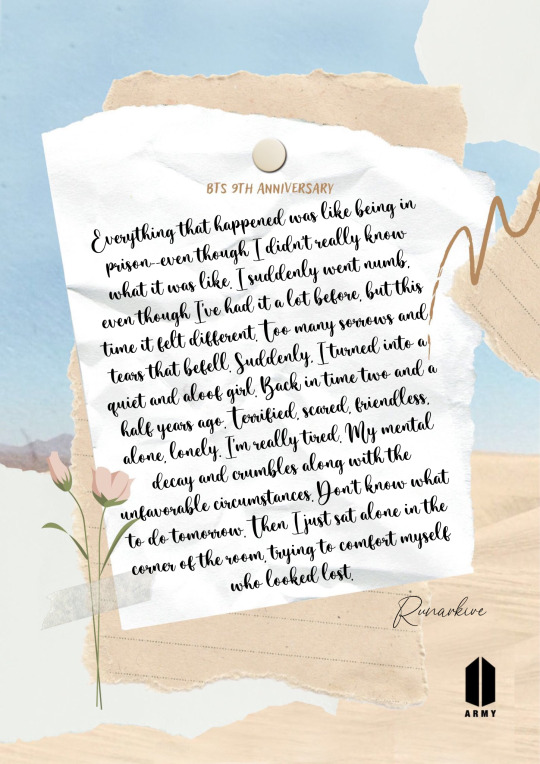 BTS 9TH ANNIVERSARY
Everything that happened was like being in
prison--even though I didn't really know
what it was like. I suddenly went numb,
even though I've had it a lot before, but this
time it felt different. Too many sorrows and
tears that befell. Suddenly, I turned into a
quiet and aloof girl. Back in time two and a
half years ago. Terrified, scared, friendless,
alone, lonely. I'm really tired. My mental
decay and crumbles along with the
unfavorable circumstances. Don't know what
to do tomorrow. Then I just sat alone in the
corner of the room, trying to comfort myself
who looked lost.
Runarkive
ARMY